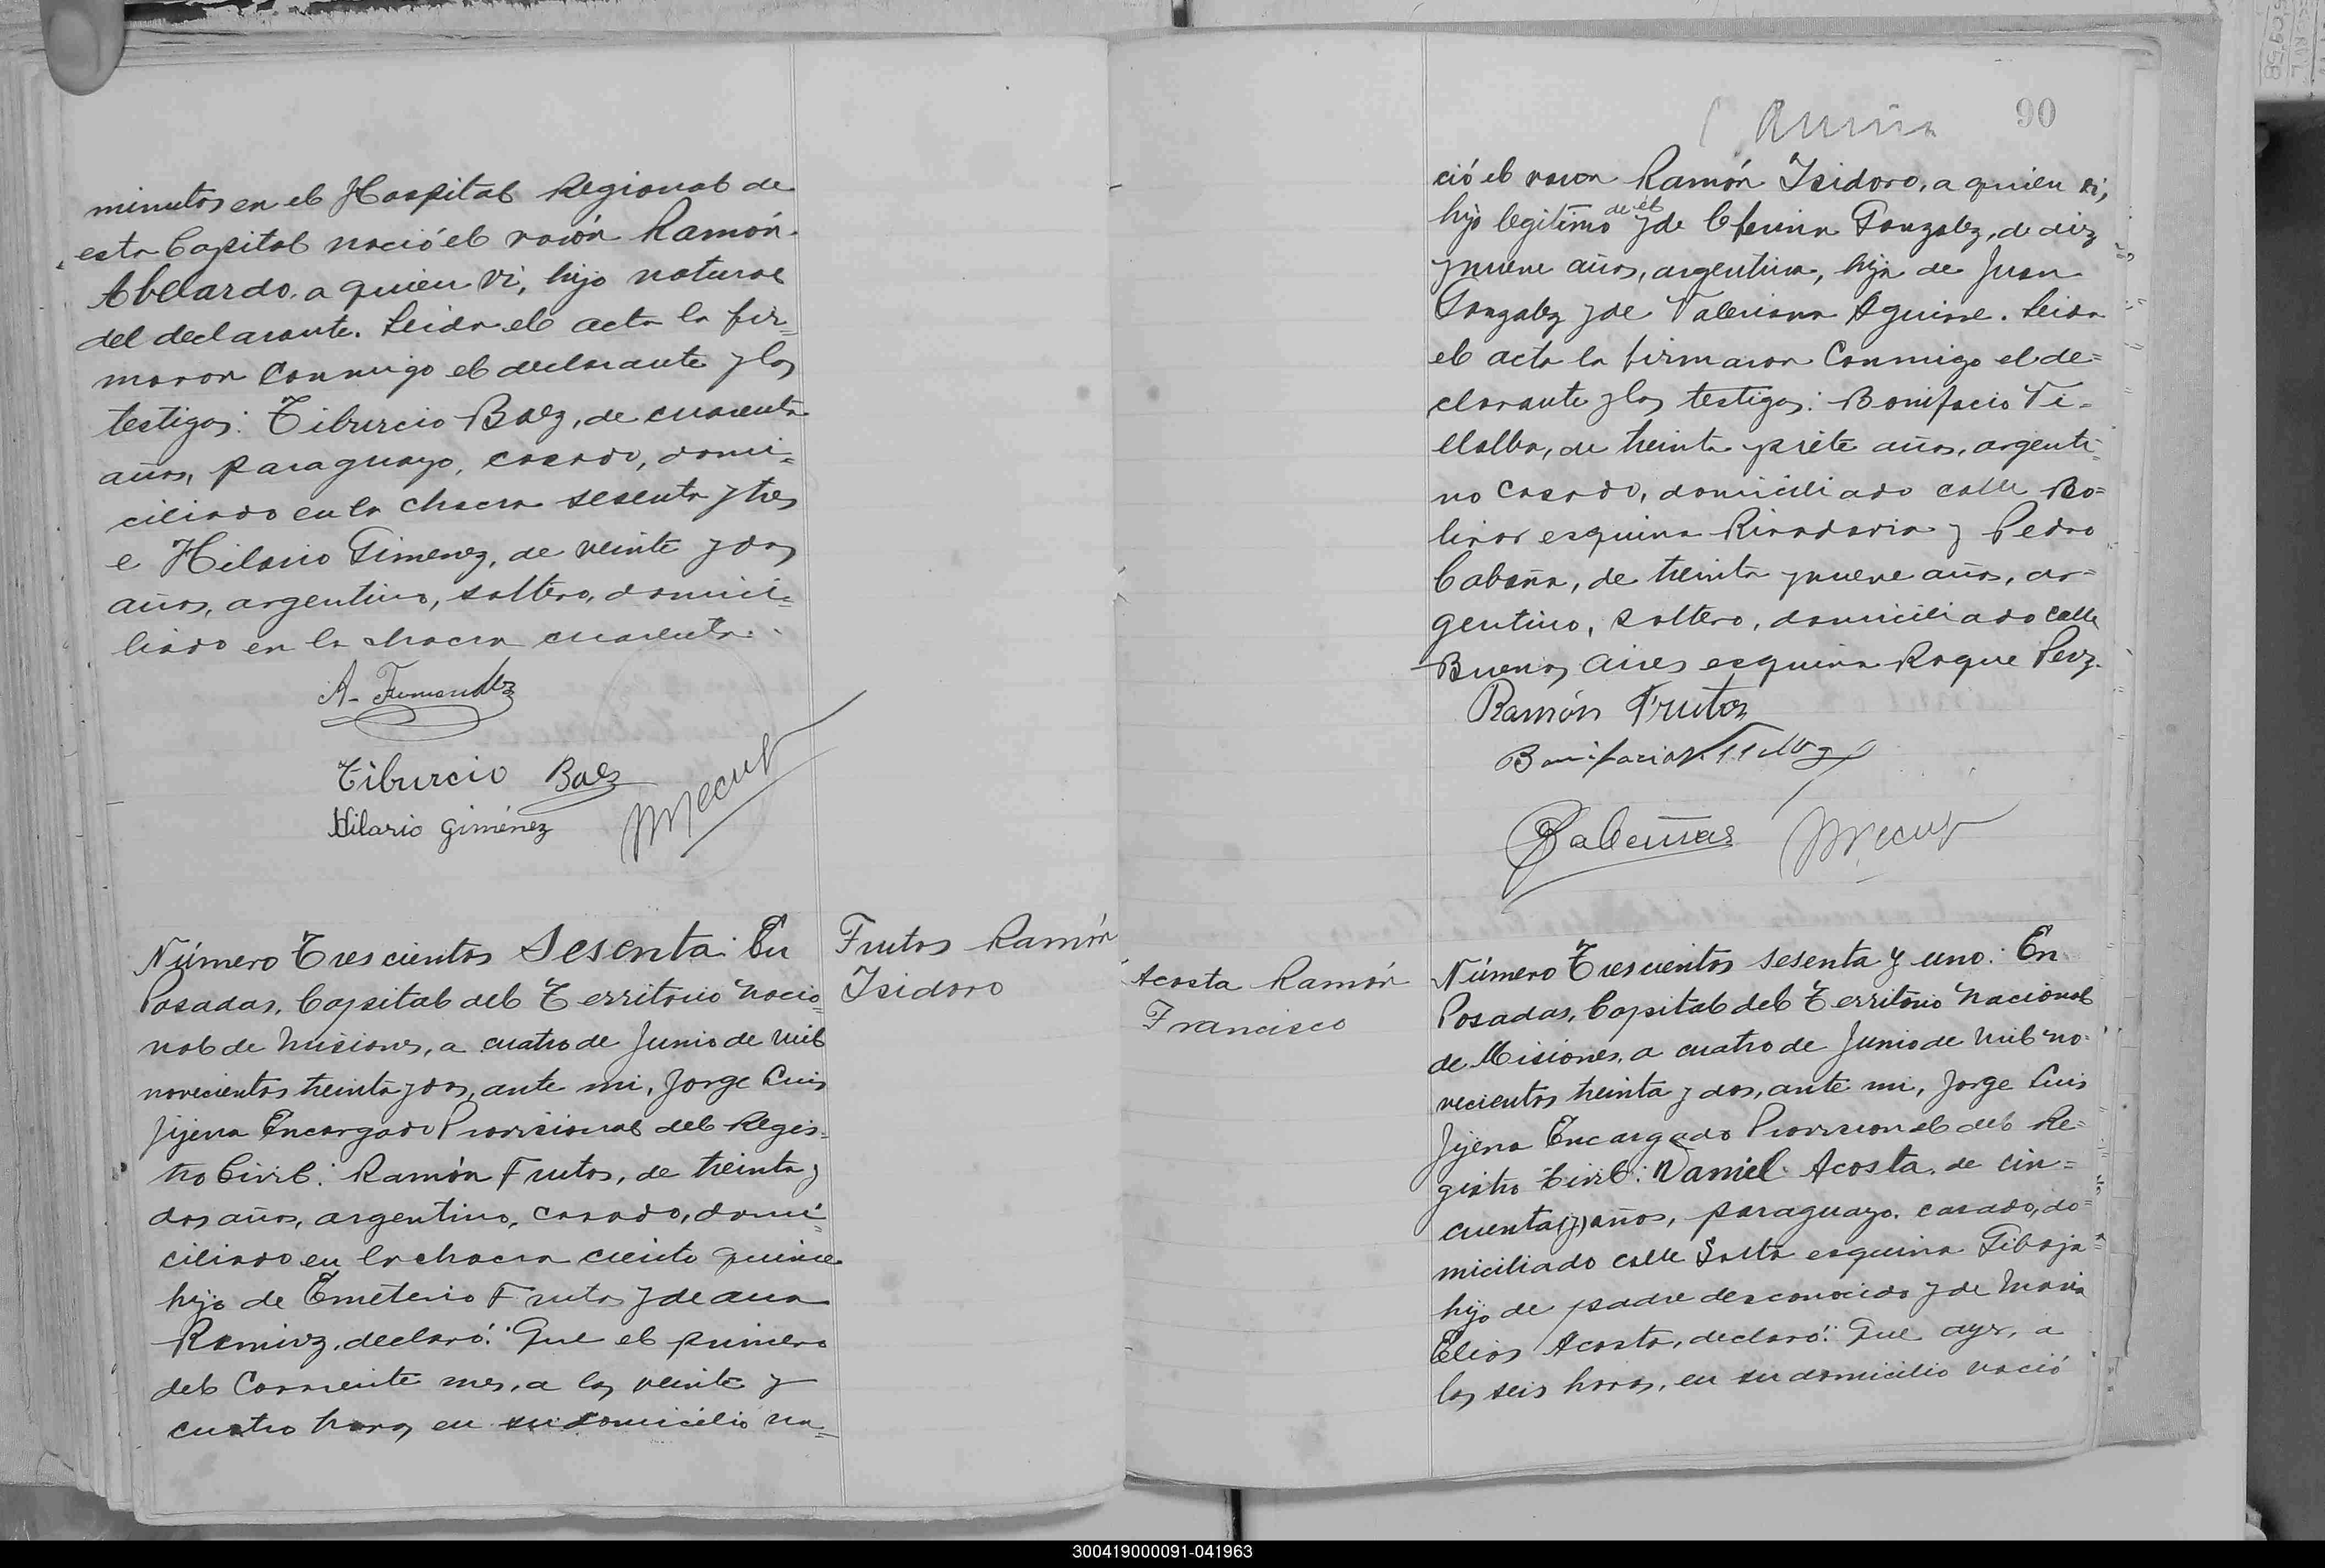 minutos en el Hospital Regional de
esta Capital nació el varón Ramón
Abelardo, a quien vi, hijo natural
del declarante. Leida el acta la fir=
maron conmigo el declarante y los
testigos: Tiburcio Baez, de cuarenta
años, paraguayo, casado, domi=
ciliado en la chacra sesenta y tres
e Hilario Gimenez, de veinte y dos
años, argentino, soltero, domici=
liado en la chacra cuarenta.
Tiburcio Baez
Hilario Giménez
Número Trescientos Sesenta: En
Posadas, Capital del Territorio Nacio=
nal de Misiones, a cuatro de Junio de mil
novecientos treinta y dos, ante mi, Jorge Luis
Jijena Encargado Provisional del Regis=
tro Civil: Ramón Frutos, de treinta y
dos años, argentino, casado, domi=
ciliado en la chacra ciento quince
hijo de Emeterio Frutos y de Ana
Ramirez, declaró: Que el primero
del corriente mes, a las veinte y
cuatro horas, en su domicilio na=
Frutos Ramón
Isidoro
90
ció el varon Ramón Isidoro, a quien vi,
hijo legitimo de el y de Ceferina Gonzalez, de diez
y nueve años, argentina, hija de Juan
Gonzalez y de Valeriana Aguirre. Leida
el acta la firmaron conmigo el de=
clarante y los testigos: Bonifacio Vi=
llalba, de treinta y siete años, argenti=
no casado, domiciliado calle Bo=
livar esquina Rivadavia y Pedro
Cabaña, de treinta y nueve años, ar=
gentino, soltero, domiciliado calle
Buenos Aires esquina Roque Perez.
Ramón Frutos
Acosta Ramón
Francisco
Número Trescientos sesenta y uno: En
Posadas, Capital del Territorio Nacional
de Misiones, a cuatro de Junio de mil no=
vecientos treinta y dos, ante mi, Jorge Luis
Jijena Encargado Provisional del Re=
gistro Civil: Daniel Acosta, de cin=
cuenta (y) años, paraguayo, casado, do=
miciliado calle Salta esquina Tibaja
hijo de padre desconocido y de Maria
Elias Acosta, declaró: Que ayer, a
las seis horas, en su domicilio nació
300419000091-041963